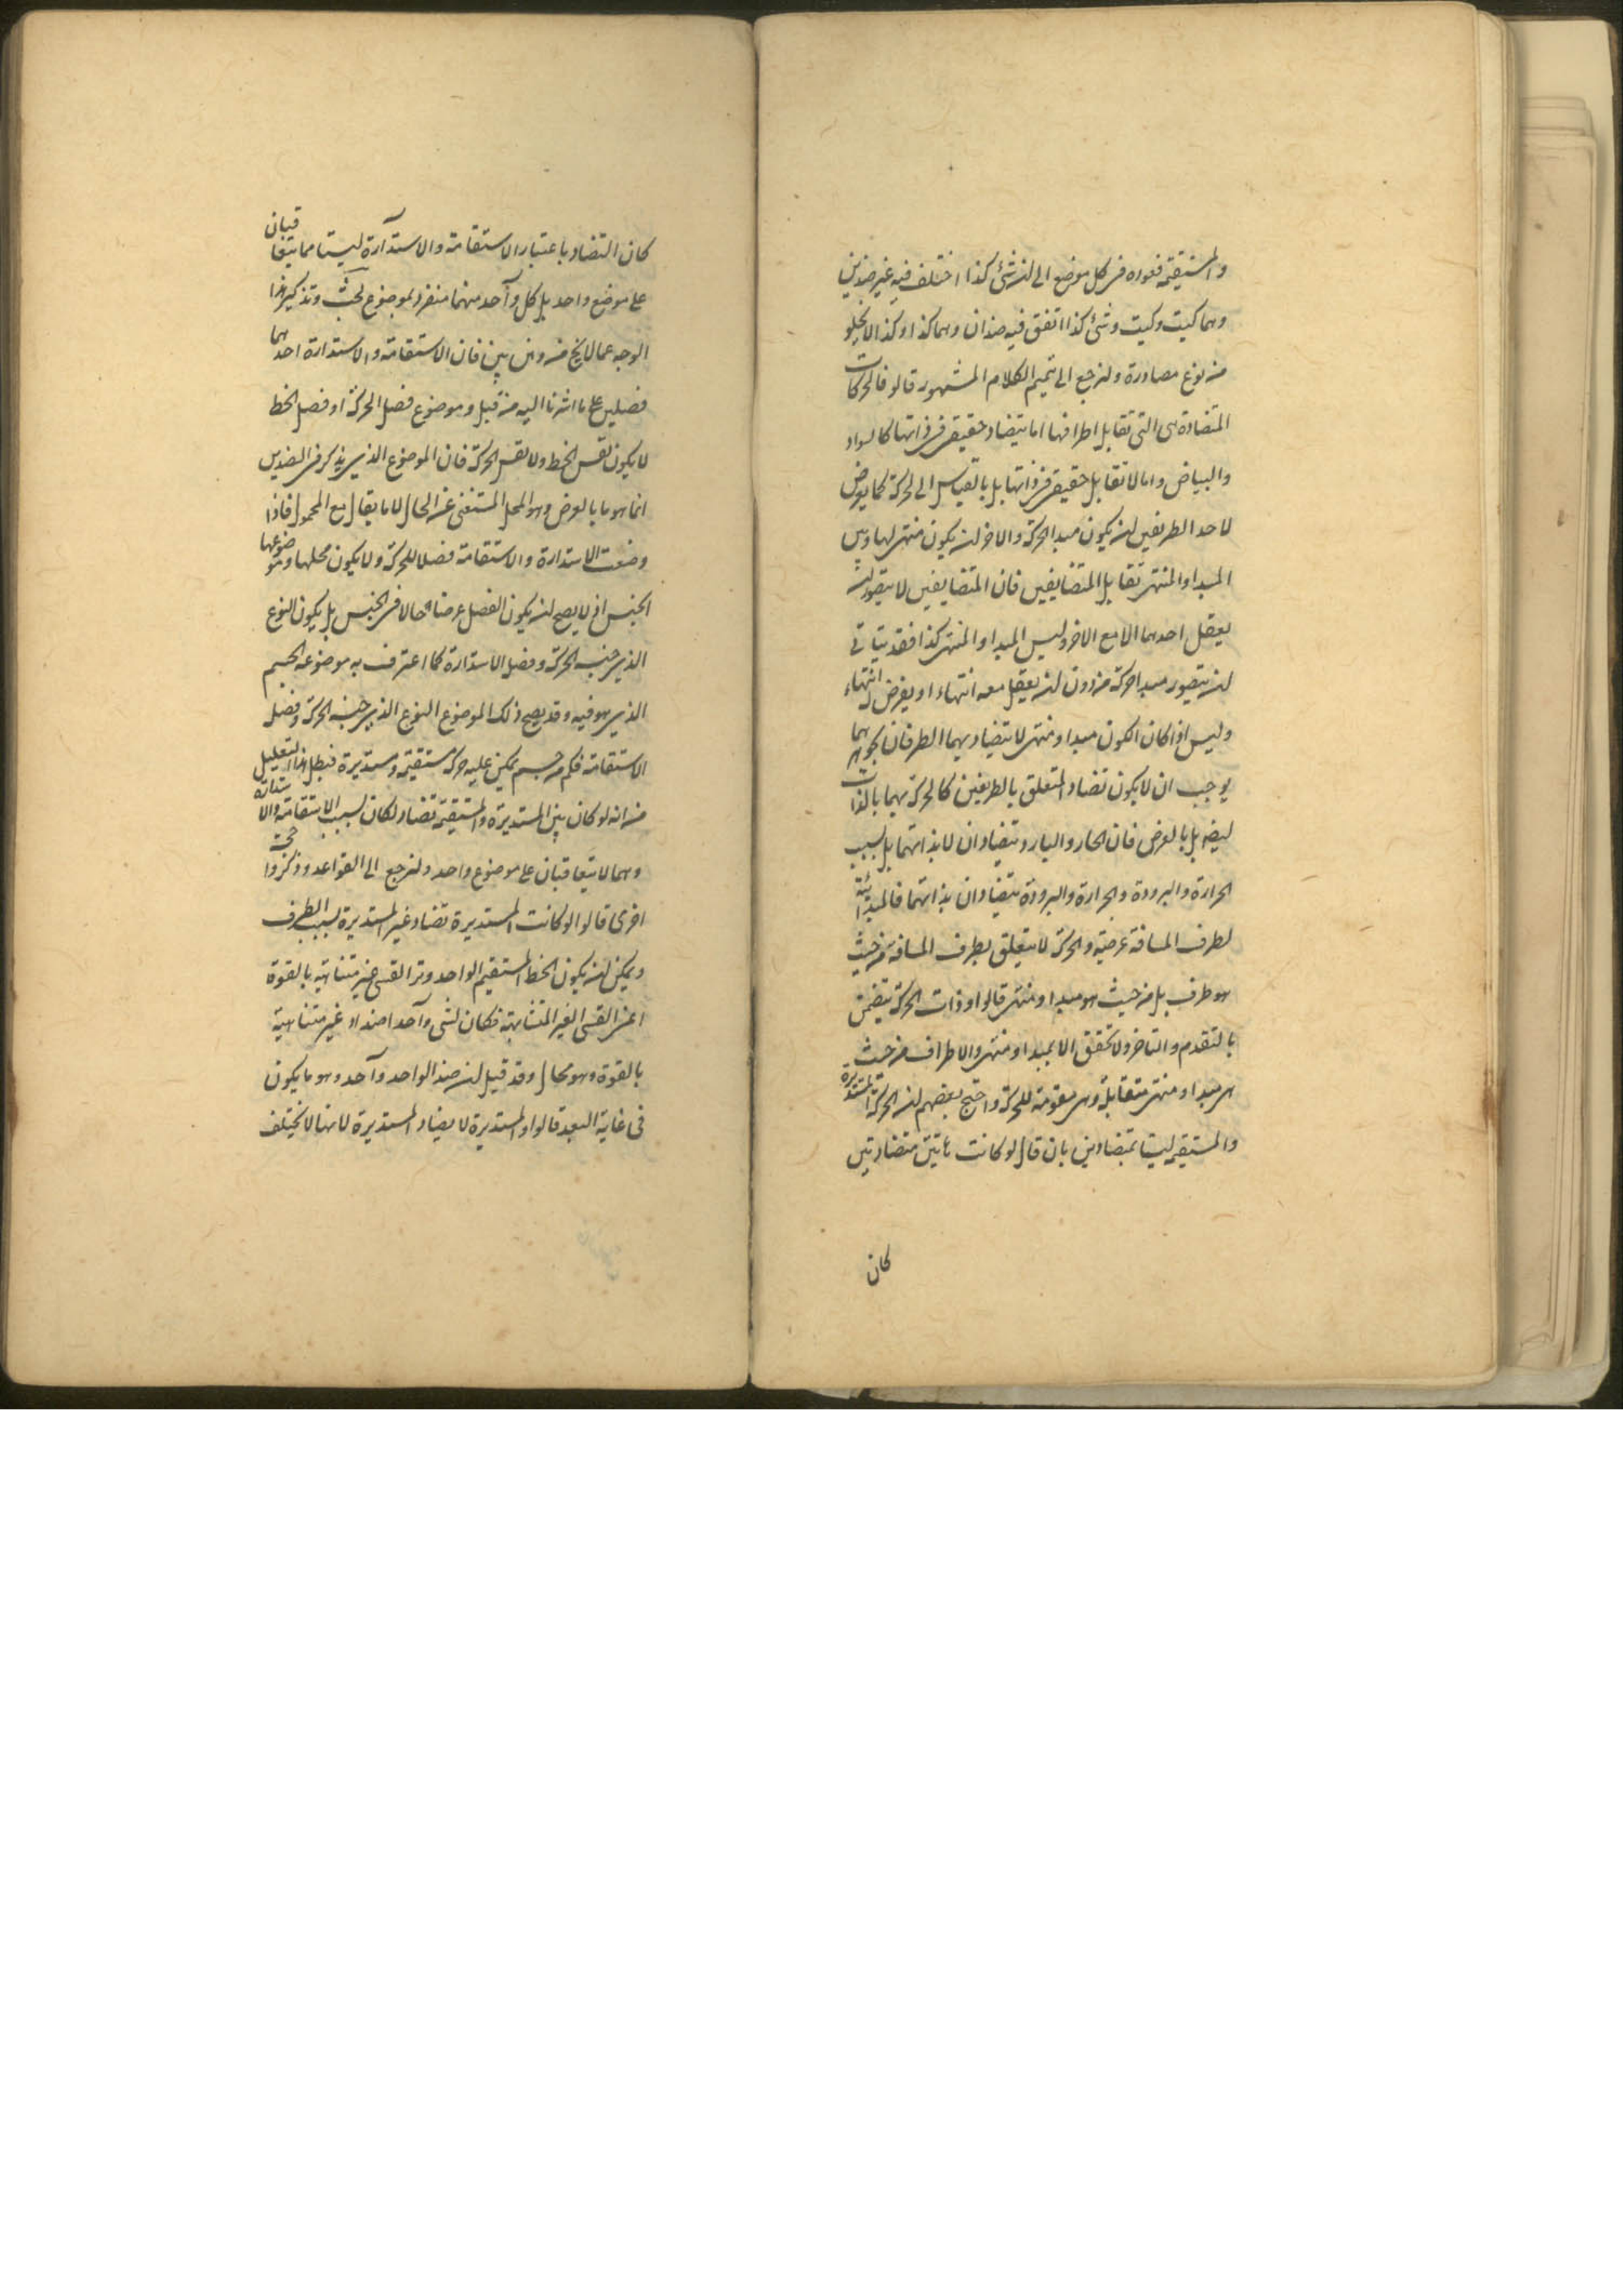 والمستقيمة فعوده فى كل موضع الى ان شئ كذا اختلف فيه غير ضدين
وهما كيت وكيت وشئ كذا اتفق فيه ضدان وهما كذا وكذا لا يخلو
من نوع مصادرة ولنرجع الى تتميم الكلام المشهور قالو فالحركات
المتضادة هى التى تقابل اطرافها اما بتضاد حقيقى فى ذاتها كالسواد
والبياض واما لا تقابل حقيقى فى ذاتها بل بالقياس الى الحركة كما يعرض
لاحد الطرفين ان يكون مبدا الحركة والاخر ان يكون منتهى لها وليس
المبدا والمنتهى تقابل المتضايفين فان المتضايفين لا يتصور ان
يعقل احدهما الا مع الاخر وليس المبدا والمنتهى كذا فقد يتاتى
ان يتصور مبدا حركة من دون ان يعقل معه انتهاء او يفرض له انتهاء
وليس اذا كان الكون مبدا ومنتهى لا يتضاد بهما الطرفان بجوهرهما
يوجب ان لا يكون تضاد المتعلق بالطرفين كالحركة بهما بالذات
ايضا بل بالعرض فان الحار والبارد يتضادان لا بذاتهما بل بسبب
الحرارة والبرودة والحرارة والبرودة يتضادان بذاتهما فالمبدائية
لطرف المسافة عرضية والحركة لا يتعلق بطرف المسافة من حيث
هو طرف بل من حيث هو مبدا ومنتهى قالوا وذات الحركة يتضمن
بالتقدم والتاخر ولا تحقق الا بمبدا ومنتهى والاطراف من حيث
هى مبدا ومنتهى متقابلة وهى مقومة للحركة واحتج بعضهم ان الحركة المستديرة
والمستقيمة ليستا بمتضادين بان قال لو كانت متضادتين
كان
كان التضاد باعتبار الاستقامة والاستدارة ليستا مما يتعاقبان
على موضع واحد بل كل واحد منهما منفرد بموضوع لحث وتذكير هذا
الوجه عما لا يخ من وهن بين فان الاستقامة والاستدارة احدهما
فصلين على ما اشرنا اليه من قبل وموضوع فصل الحركة او فصل الخط
لا يكون نفس الخط ولا نفس الحركة فان الموضوع الذى يذكر فى الضدين
انما هو ما بالعرض وهو المحل المستغنى عن الحال لا ما يقال مع المحمول فاذا
وضعت الاستدارة والاستقامة فصلا للحركة ولا يكون محلها وموضوعها
الجنس اذ لا يصح ان يكون الفصل عرضا وحالا فى الجنس بل يكون النوع
الذى جنسه الحركة وفصله الاستدارة كما اعترف به موضوعه الجسم
الذى هو فيه وقد يصح ذلك الموضوع النوع الذى جنسه الحركة وفصله
الاستقامة فكم من جسم يمكن عليه حركة مستقيمة ومستديرة فبطل هذا التعليل
من انه لو كان بين المستديرة والمستقيمة تضاد لكان بسبب الاستقامة والاستدارة
وهما لا يتعاقبان على موضوع واحد ولنرجع الى القواعد وذكروا حجة
اخرى قالوا لو كانت المستديرة تضاد غير المستديرة بسبب الطرف
ويمكن ان يكون الخط المستقيم الواحد وتر القسى غير متناهية بالقوة
اعنى القسى الغير المتشابهة فكان لشى واحد اضداد غير متناهية
بالقوة وهو محال وقد قيل ان ضد الواحد واحد وهو ما يكون
فى غاية البعد قالوا والمستديرة لا يضاد المستديرة لانها لا يختلف